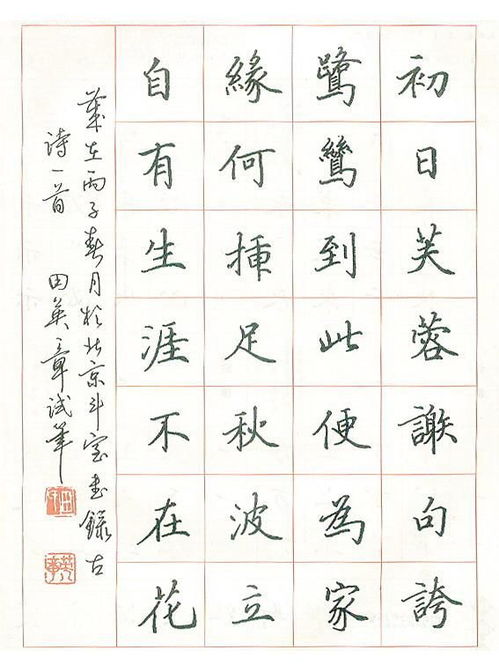 初日芙蓉謝句誇
鷺鷥到此便為家
緣何挿足秋波立
自有生涯不在花
歲在丙子春月於北京斗室書錄古
诗一首 田英章试筆
英章